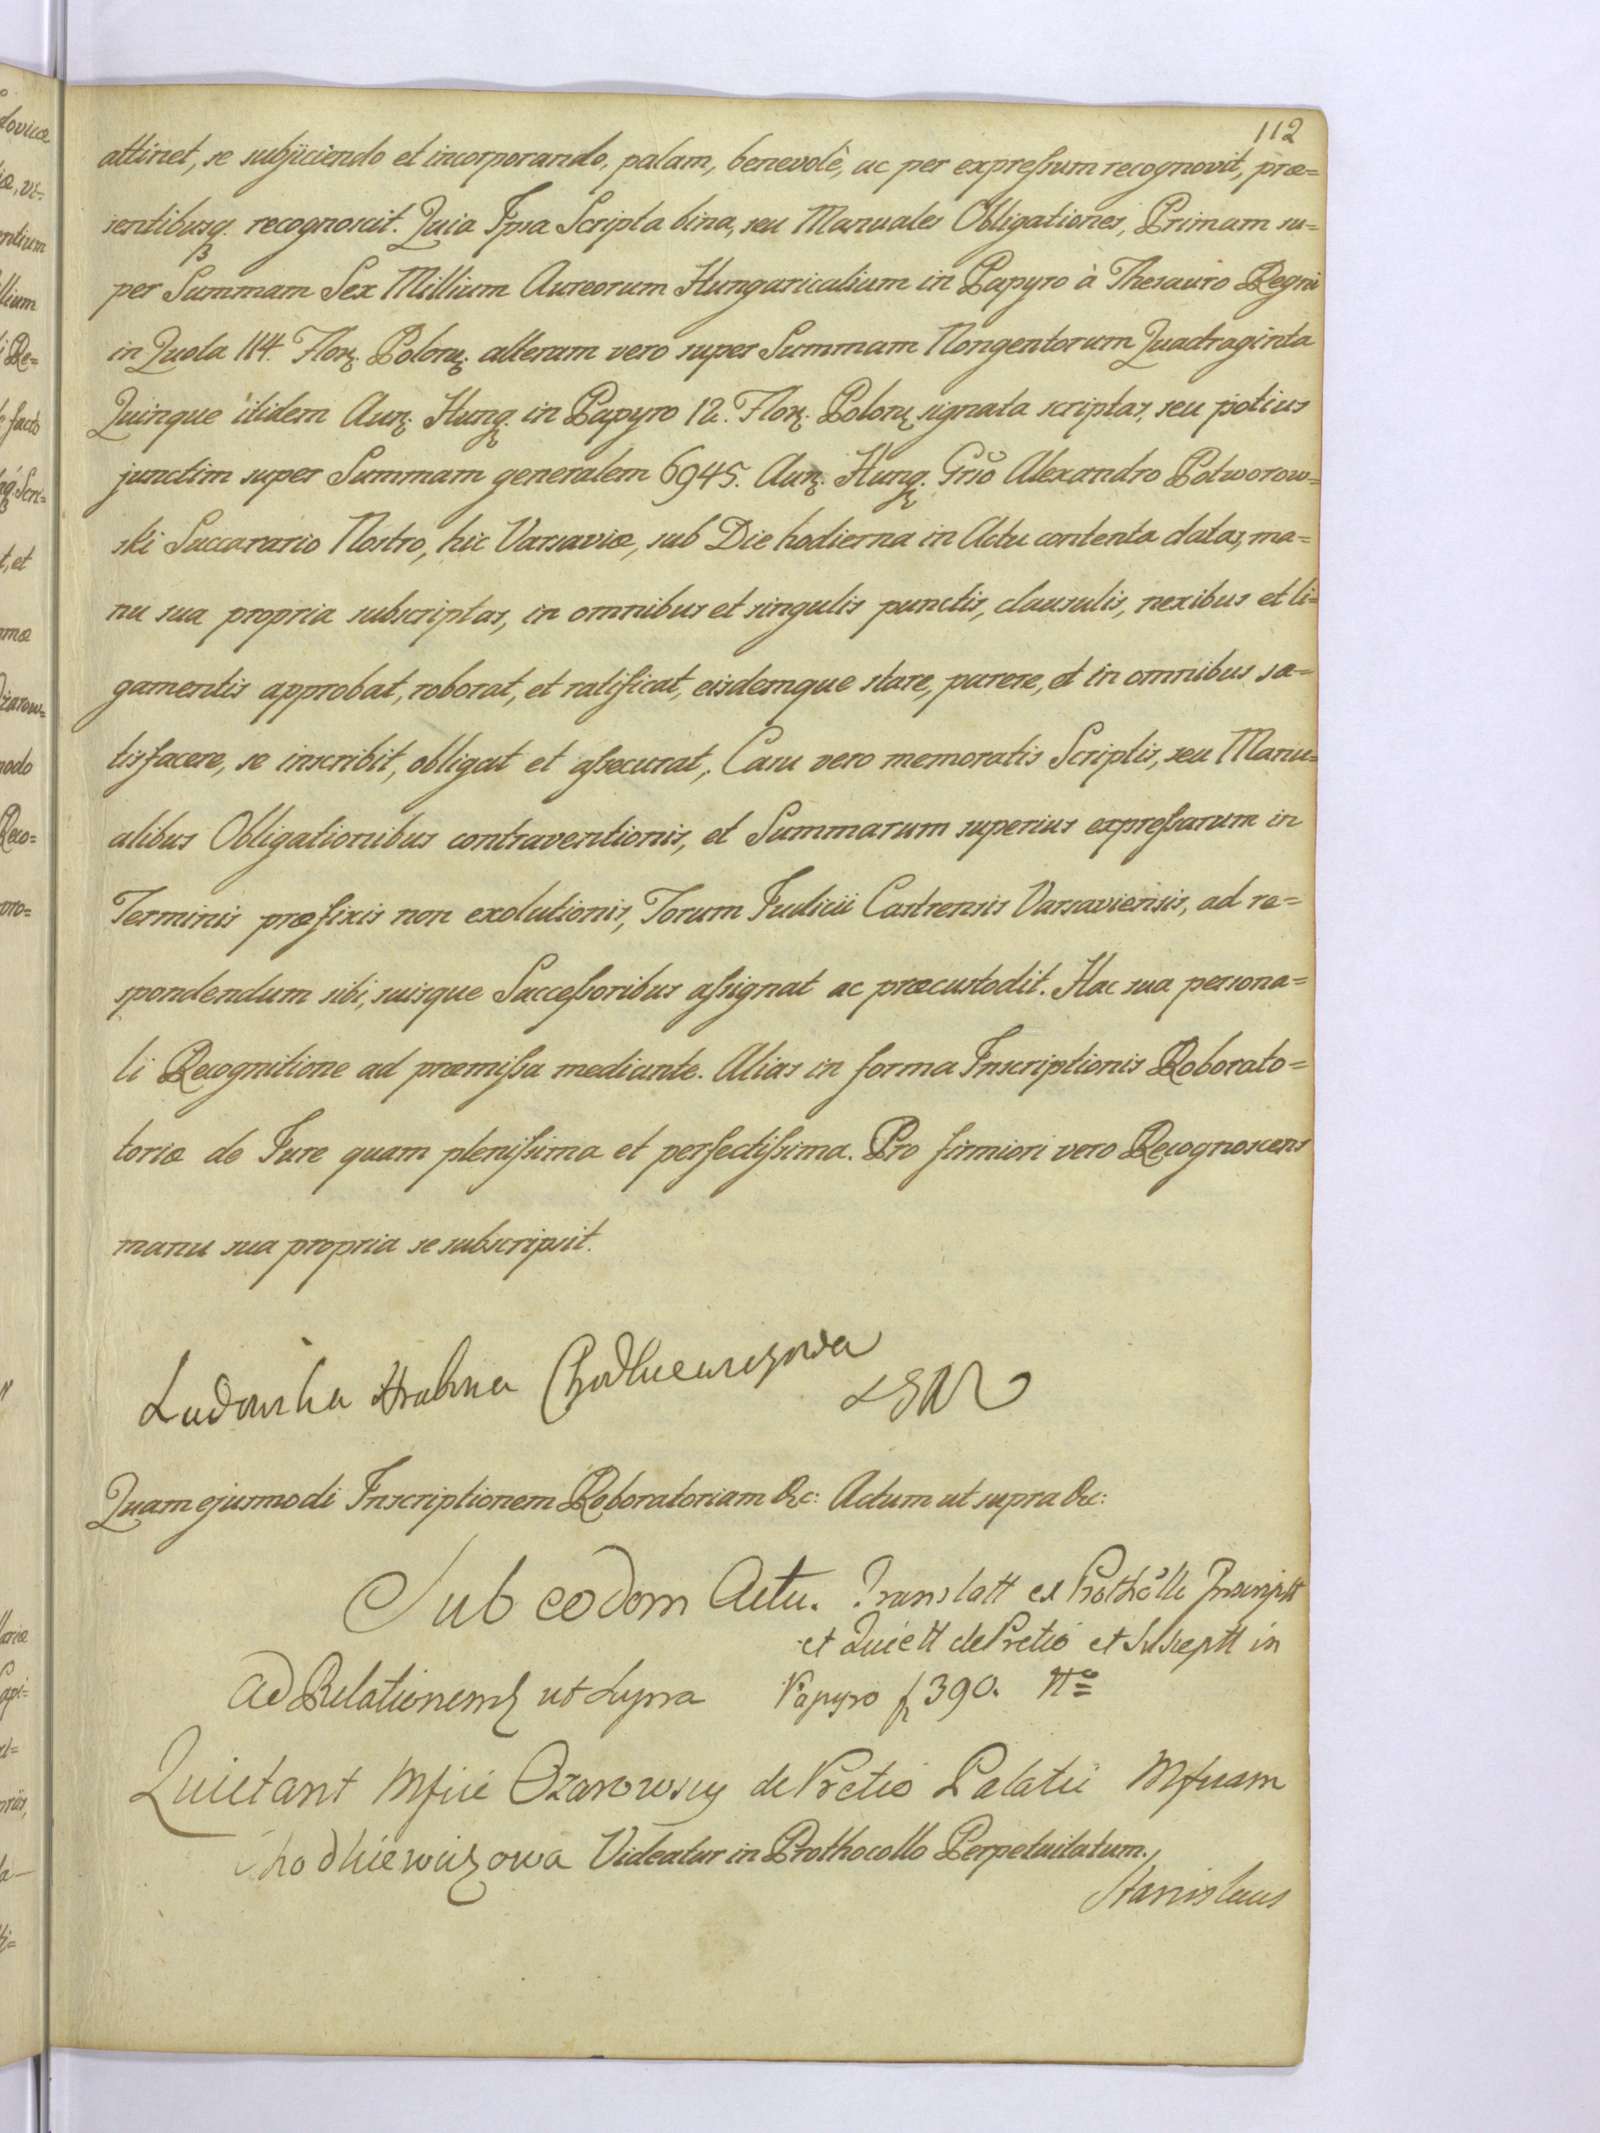 112
attinet, se subjiciendo et incorporando, palam, benevolè, ac per expressum recognovit, præ=
sentibusq. recognoscit. Quia Ipsa Scripta bina, seu Manuales Obligationes, Primam su=
per Summam Sex Millium Aureorum Hungaricalium in Papyro à Thesauro Regni
in Quota 114. Flor. Polon. alteram vero super Summam Nongentorum Quadraginta
Quinque itidem Aur. Hung. in Papyro 12. Flor. Polon. signata scriptas, seu potius
junctim super Summam generalem 6945. Aur. Hung. Grsō Alexandro Potworow=
ski Succarario Nostro, hic Varsaviæ, sub Die hodierna in Actu contenta datas, ma=
nu sua propria subscriptas, in omnibus et singulis punctis, clausulis, nexibus et li=
gamentis approbat, roborat, et ratificat, eisdemque stare, parere, et in omnibus sa=
tisfacere, se inscribit, obligat et assecurat, Casu vero memoratis Scriptis, seu Manu=
alibus Obligationibus contraventionis, et Summarum superius expressarum in
Terminis præfixis non exolutionis, Forum Judicii Castrensis Varsaviensis, ad re=
spondendum sibi, suisque Successoribus assignat ac præcustodit. Hac sua persona=
li Recognitione ad præmissa mediante. Alias in forma Inscriptionis Roborato=
toriæ de Jure quam plenissima et perfectissima. Pro firmiori vero Recognoscens
manu sua propria se subscripsit.
Ludowika Hrabina Chodkiewiczowa
Quam ejusmodi Inscriptionem Roboratoriam &c: Actum ut supra &c:
Sub eodem Actu. Translatt ex Prothōllo Inscriptt
et Quiett de Pretio et Suscptt in
Ad Relationem ut supra Papyro f 390. Nō
Quietant Mfici Ozarowscy de Pretio Palatii Mficam
Chodkiewiczowa Videatur in Prothocollo Perpetuitatum.
Stanislaus